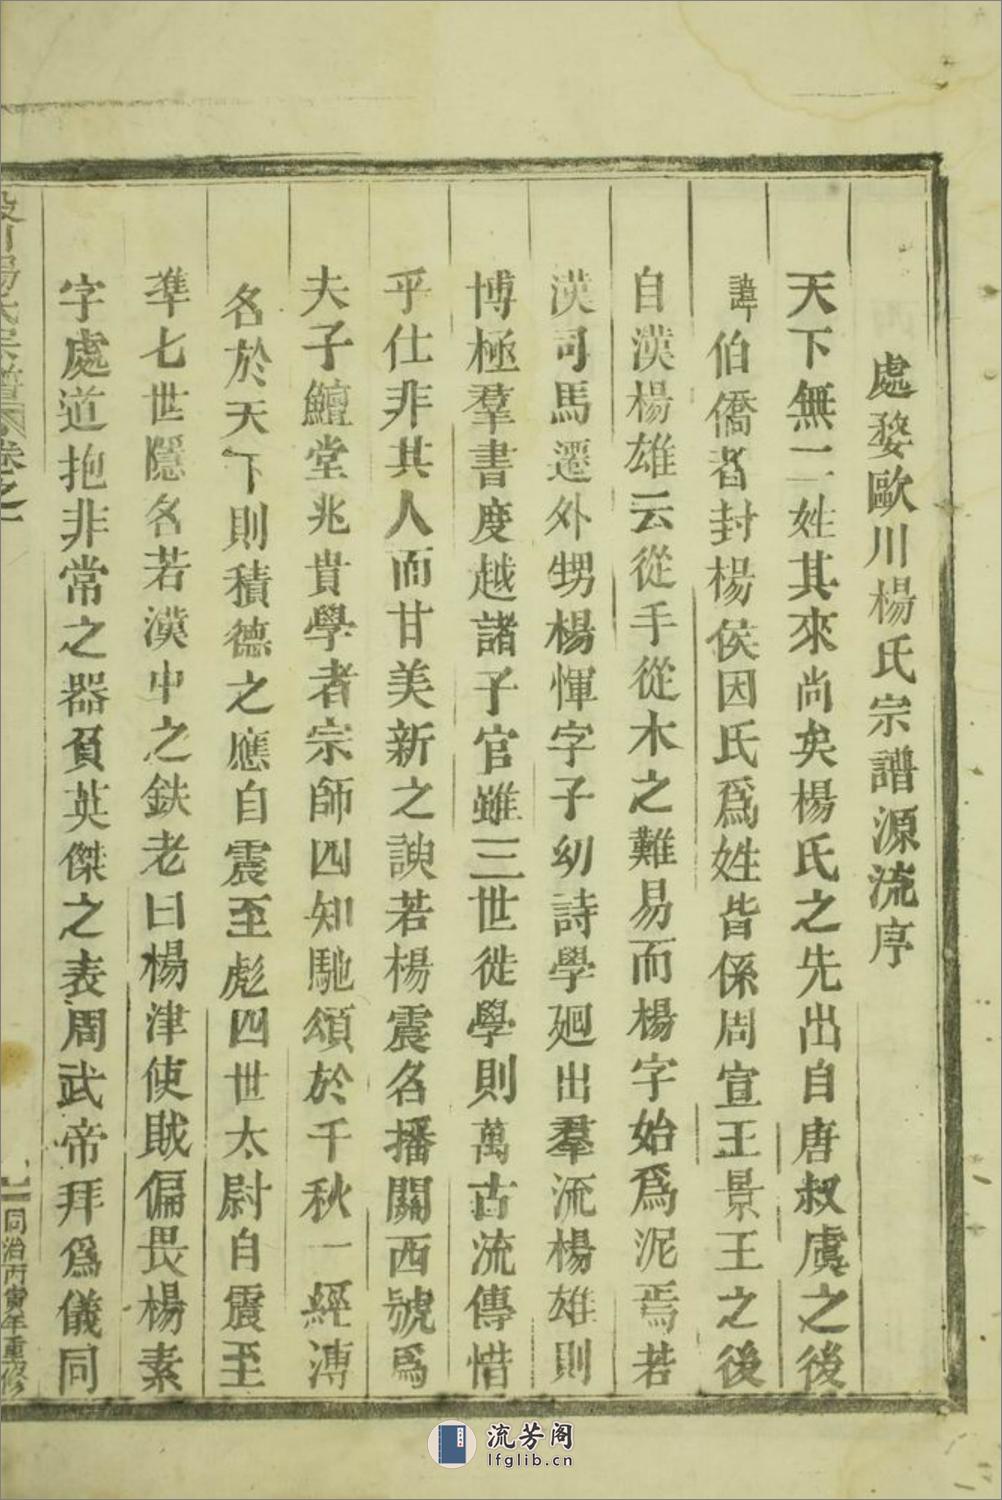 處婺歐川楊氏宗譜源流序
天下無二姓其來尚矣楊氏之先出自唐叔虞之後
諱伯僑者封楊侯因氏爲姓皆係周宣王景王之後
自漢楊雄云從手從木之難易而楊字始爲泥焉若
漢司馬遷外甥楊惲字子幼詩學廻出羣流楊雄則
博極羣書度越諸子官雖三世徙學則萬古流傳惜
乎仕非其人而甘美新之諛若楊震名播關西號爲
夫子鱣堂兆貴學者宗師四知馳頌於千秋一經溥
名於天下則積德之應自震至彪四世太尉自震至
準七世隱名若漢中之鈌老曰楊津使賊偏畏楊素
字處道抱非常之器負英傑之表周武帝拜爲儀同
川楊氏宗譜
卷之一
一
同治丙寅年重修
流芳阁
lfglib.cn